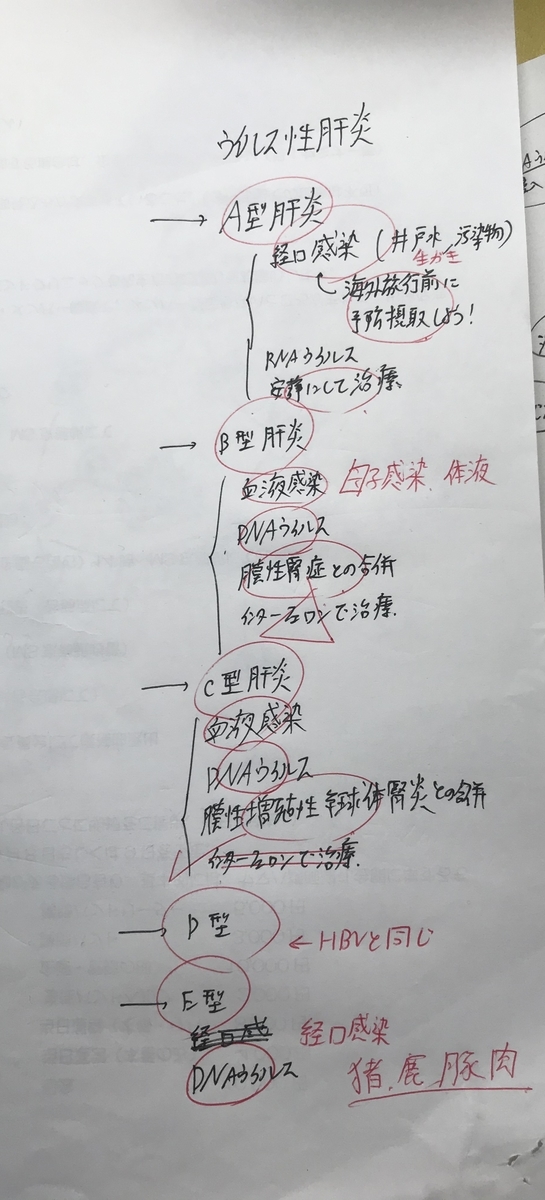 ウイルス性肝炎
→ A型肝炎
経口感染 (井戸水, 汚染物)
生かき
海外旅行前に
予防摂取しよう!
RNAウイルス
安静にして治療。
→ B型肝炎
血液感染 母子感染、体液
DNAウイルス
膜性腎症との合併
インターフェロンで治療.
→ C型肝炎
血液感染
DNAウイルス
膜性増殖性糸球体腎炎との合併
インターフェロンで治療.
→ D型 ←HBVと同じ
→ E型
経口感 経口感染
DNAウイルス 猪、鹿、豚肉